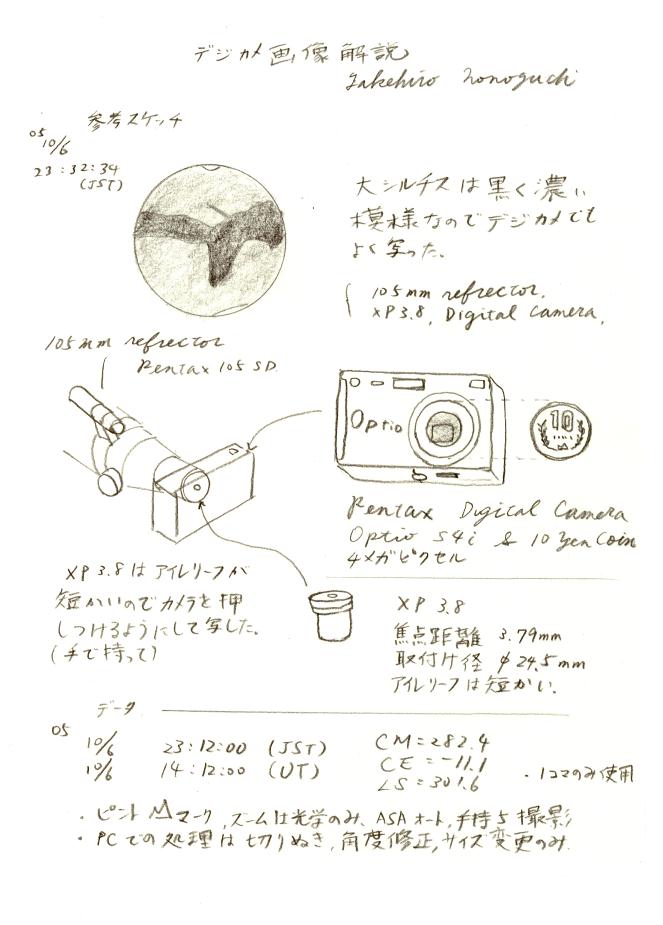 デジカメ画像解説
Takehiro Nonoguchi
参考スケッチ
05
10/6
23:32:34
(JST)
大シルチスは黒く濃い
模様なのでデジカメでも
よく写った。
105mm refrector.
XP3.8, Digital Camera,
105mm refrector
Pentax 105 SD.
Optio
10
Pentax Digital Camera
Optio S4i & 10 yen coin
4メガピクセル
XP 3.8はアイレリーフが
短かいのでカメラを押
しつけるようにして写した。
(手で持って)
XP 3.8
焦点距離 3.79mm
取付け径 φ24.5mm
アイレリーフは短かい.
データ
05
10/6 23:12:00 (JST)
10/6 14:12:00 (UT)
CM=282.4
CE=-11.1
LS=301.6
・1コマのみ使用
・ピント マーク, ズームは光学のみ, ASAオート, 手持ち撮影
・PCでの処理は切りぬき, 角度修正, サイズ変更のみ.